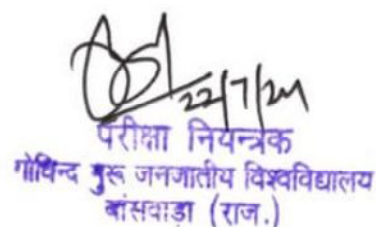 22/7/24
परीक्षा नियन्त्रक
गोविन्द गुरू जनजातीय विश्वविद्यालय
बांसवाड़ा (राज.)